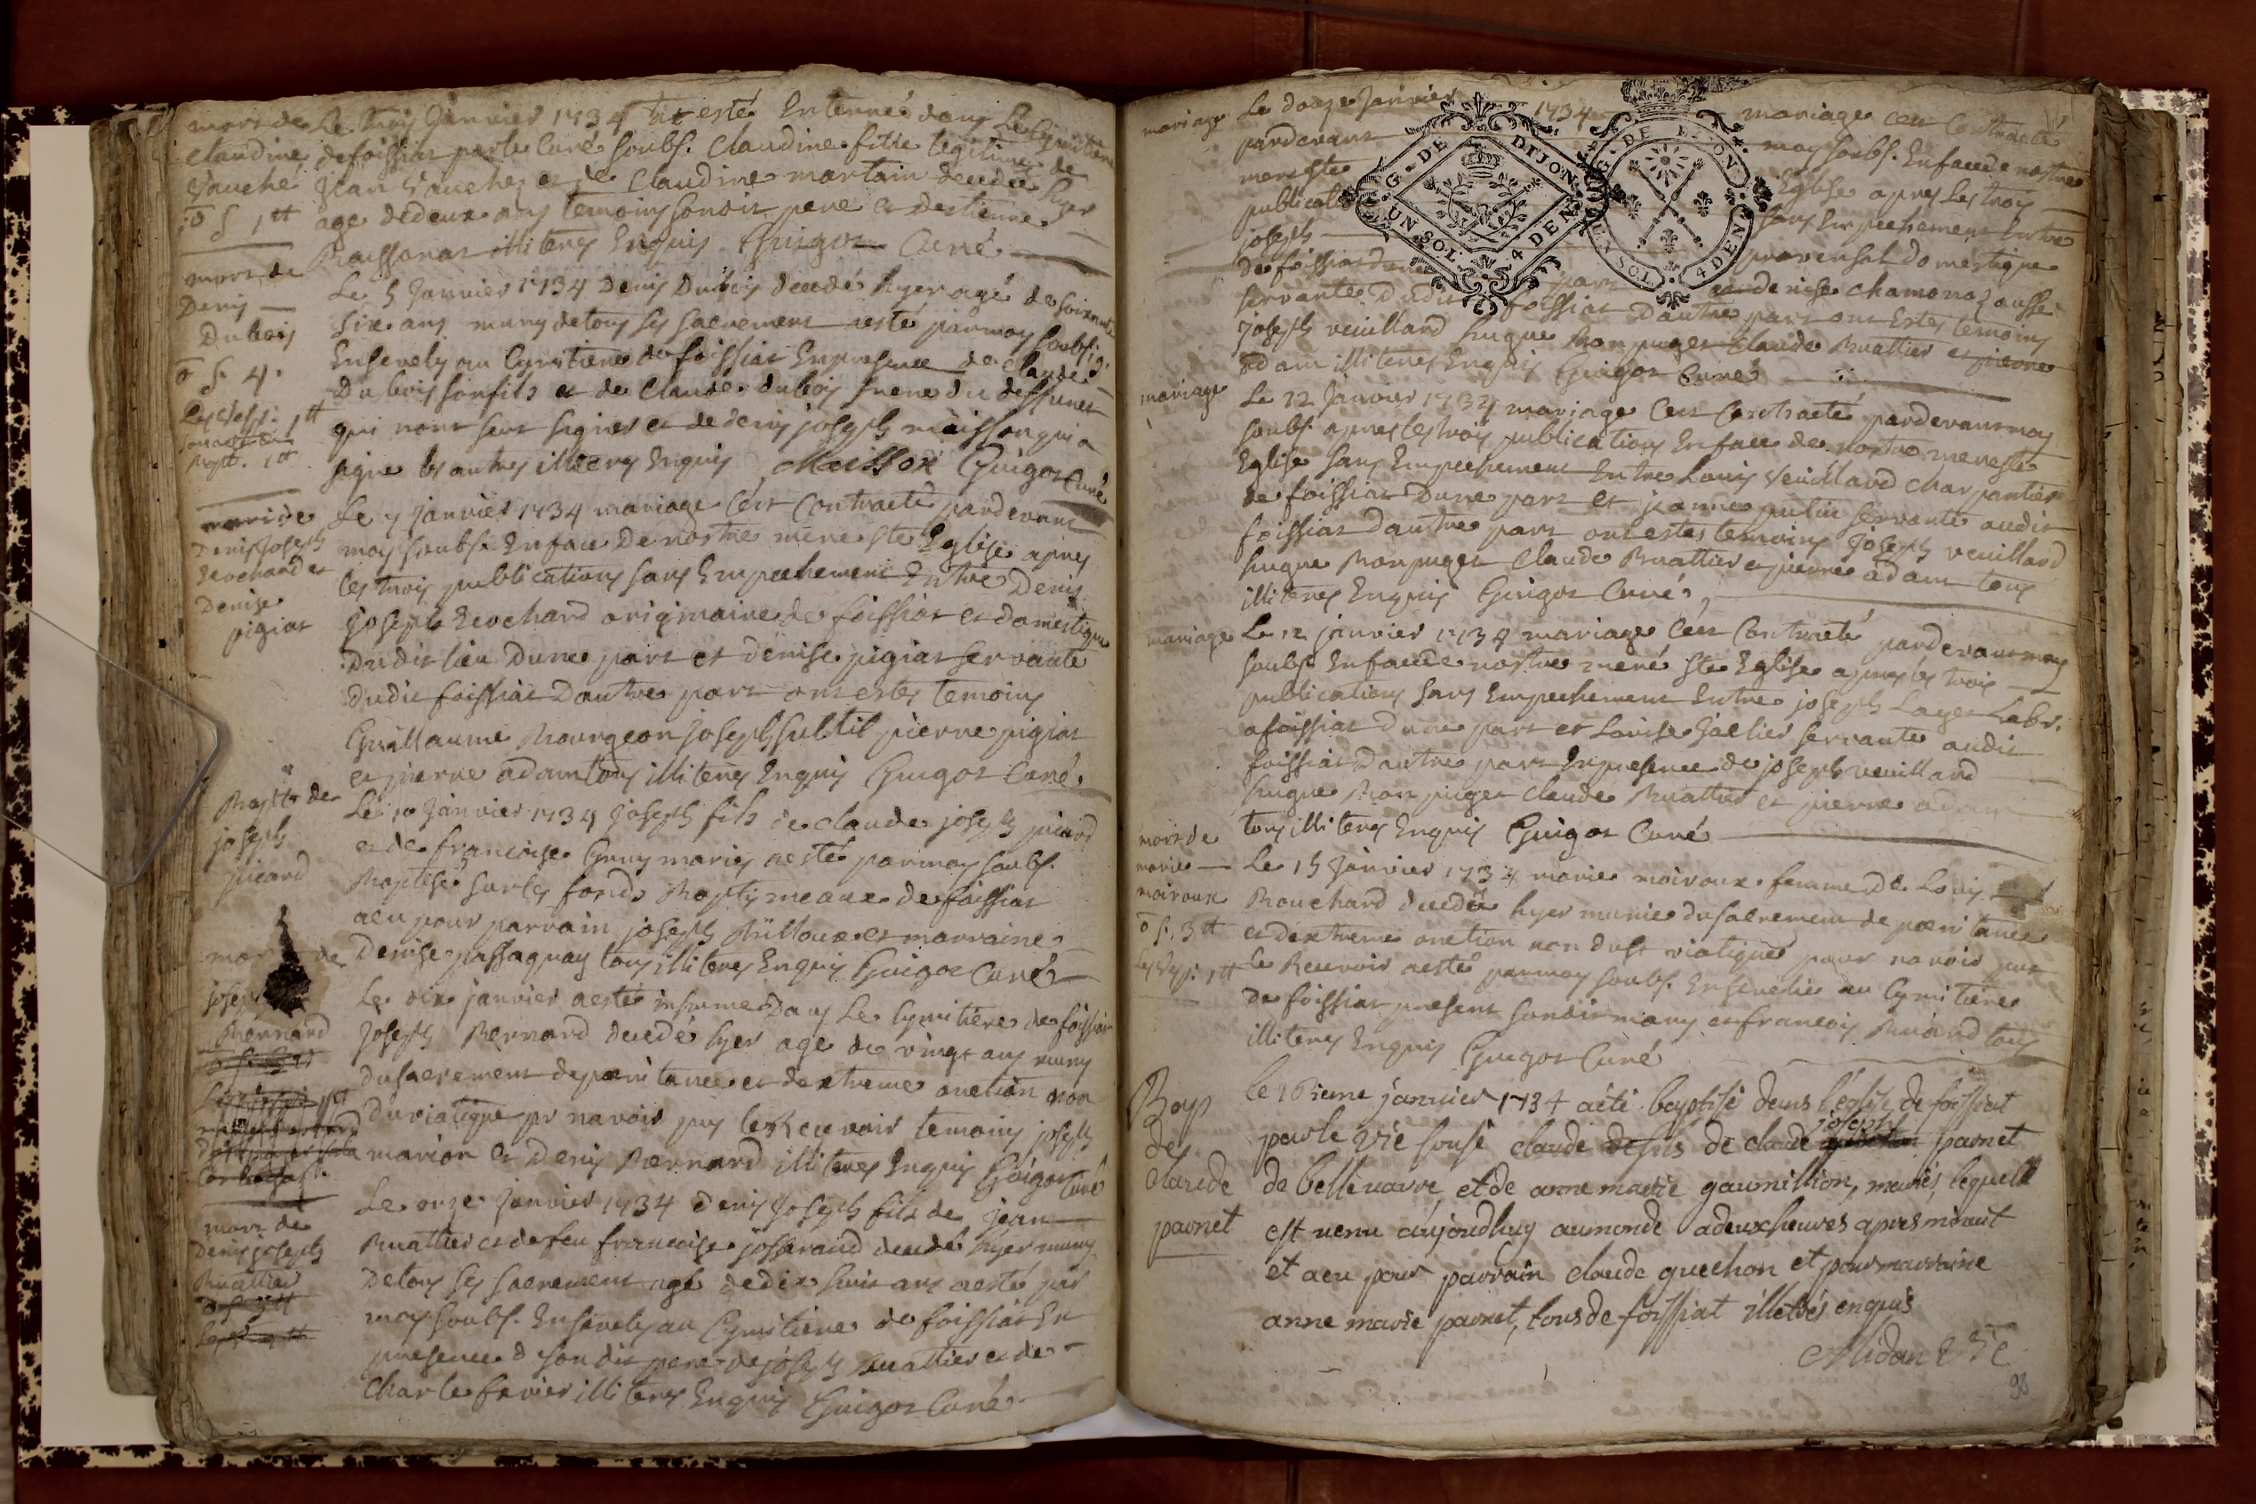 mort de
Claudine
Vauche
Le trois Janvier 1734 at esté Enterreé dans Le Cymitiere
de foissiat par le Curé soubs. Claudine fille legitime de
Jean Vauchez et de Claudine martain decedeé hyer
age dedeux ans temoins sonoit pere et Destienne
illiteres Enquis Guigot Curé
mort de
Denis
Dubois
Le 5 Janvier 1734 Denis Dubois decedé hyer agé de soixante
Six ans muny de tous ses sacremens aesté parmoy soubs.
Ensevely au Cymitiere de foissiat Enpresence de Claude
Dubois son fils et de Claude dubois frere du deffunct
qui nont sceut signer et de denis joseph maisson qui a
signe les autres illiteres Enquis Maisson Guigot Curé
mariage
Denis Joseph
Reochard et
Denise
pigiat
Le 7 janvier 1734 mariage C'est Contracté pardevant
moy soubs. Enface De nostre mere Ste Eglise apres
les trois publications sans Empechement Entre Denis
Joseph Reochard originaire de foissiat et domestique
Dudit lieu Dune part et Denise pigiat servante
dudit foissiat Dautre part ont estes temoins
Guillaume Bourgeon Joseph subtil pierre pigiat
et pierre adam tous illiteres Enquis Guigot Curé
Bapte de
joseph
picard
Le 10 Janvier 1734 Joseph fils de claude joseph picard
et de francoise Gruy maries aesté parmoy soubs.
Baptisé sur les fonds Baptismeaux de foissiat
aeu pour parrain joseph Billoux et marraine
Denise passaquay tous illiteres Enquis Guigot Curé
mort de
joseph
Bernard
Le dix janvier aesté inhumé Dans Le Cymitiere de foissiat
Joseph Bernard decedé hyer age de vingt ans muny
du sacrement de penitance et dextreme onction non
du viatique pr navoir pus le Recevoir temoins joseph
marion et Denis Bernard illiteres Enquis Guigot Curé
mort de
Denis joseph
Buattier
Le onze janvier 1734 Denis Joseph fils de jean
Buattier et de feu francoise josserand decedé hyer muny
De tous ses sacremens agé de dix huit ans aesté par
moy soubs. Ensevely au Cymitiere de foissiat En
presence d son dit pere de joseph Buattier et de
Charle favier illiteres Enquis Guigot Curé
mariage
Le douze Janvier 1734 mariage cest Contracté
pardevant moy soubs. Enface de nostre
mere Ste Eglise apres les trois
publications sans Empechement Entre
joseph provensal domestique
De foissiat dune part et denise chamonaz aussi
servante Dudit foissiat Dautre part ont Estes temoins
Joseph veuillard hugue Bonpuget Claude Buattier et pierre
adam illiteres Enquis Guigot Curé
G. DE DIJON
UN SOL 4 DEN
G. DE DIJON
UN SOL 4 DEN
mariage
Le 12 Janvier 1734 mariage C'est Contracté pardevant moy
soubs. apres les trois publications Enface de nostre mere Ste
Eglise sans Empechement Entre Louis Veuillard Charpantier
de foissiat Dune part et jeanne putin servante audit
foissiat Dautre part ont estes temoins Joseph veuillard
hugue Bonpuget Claude Buattier et pierre adam tous
illiteres Enquis Guigot Curé
mariage
Le 12 janvier 1734 mariage C'est Contracté pardevant moy
soubs. Enface de nostre mere Ste Eglise apres les trois
publications sans Empechement Entre joseph Layet Labr.
a foissiat Dune part et Louise Jaelier servante audit
foissiat Dautre part Enpresence de joseph veuillard
hugue Bonpuget Claude Buattier et pierre adam
tous illiteres Enquis Guigot Curé
mort de
marie
moiroux
Le 15 Janvier 1734 marie moiroux femme De Louis
Bouchard decedeé hyer munie du sacrement de penitance
et dextreme onction non du St viatique pour navoir pus
le Recevoir aesté parmoy soubs. Ensevelie au Cymitiere
de foissiat present son dit mary et francois Buard tous
illiteres Enquis Guigot Curé
Bap
de
Claude
pavnet
le 16ieme janvier 1734 aété baptisé dans l'église de foissiat
par le Vic sousé claude defils de claude joseph pavnet
de bellenavre et de anne marie gaumillion, mariés, lequel
est venu aujourdhuy aumonde adeux heures apres minuit
et aeu pour parrain claude guechon et pour marraine
anne marie pavnet, tous de foissiat illetrés enquis
Midan Vic
98